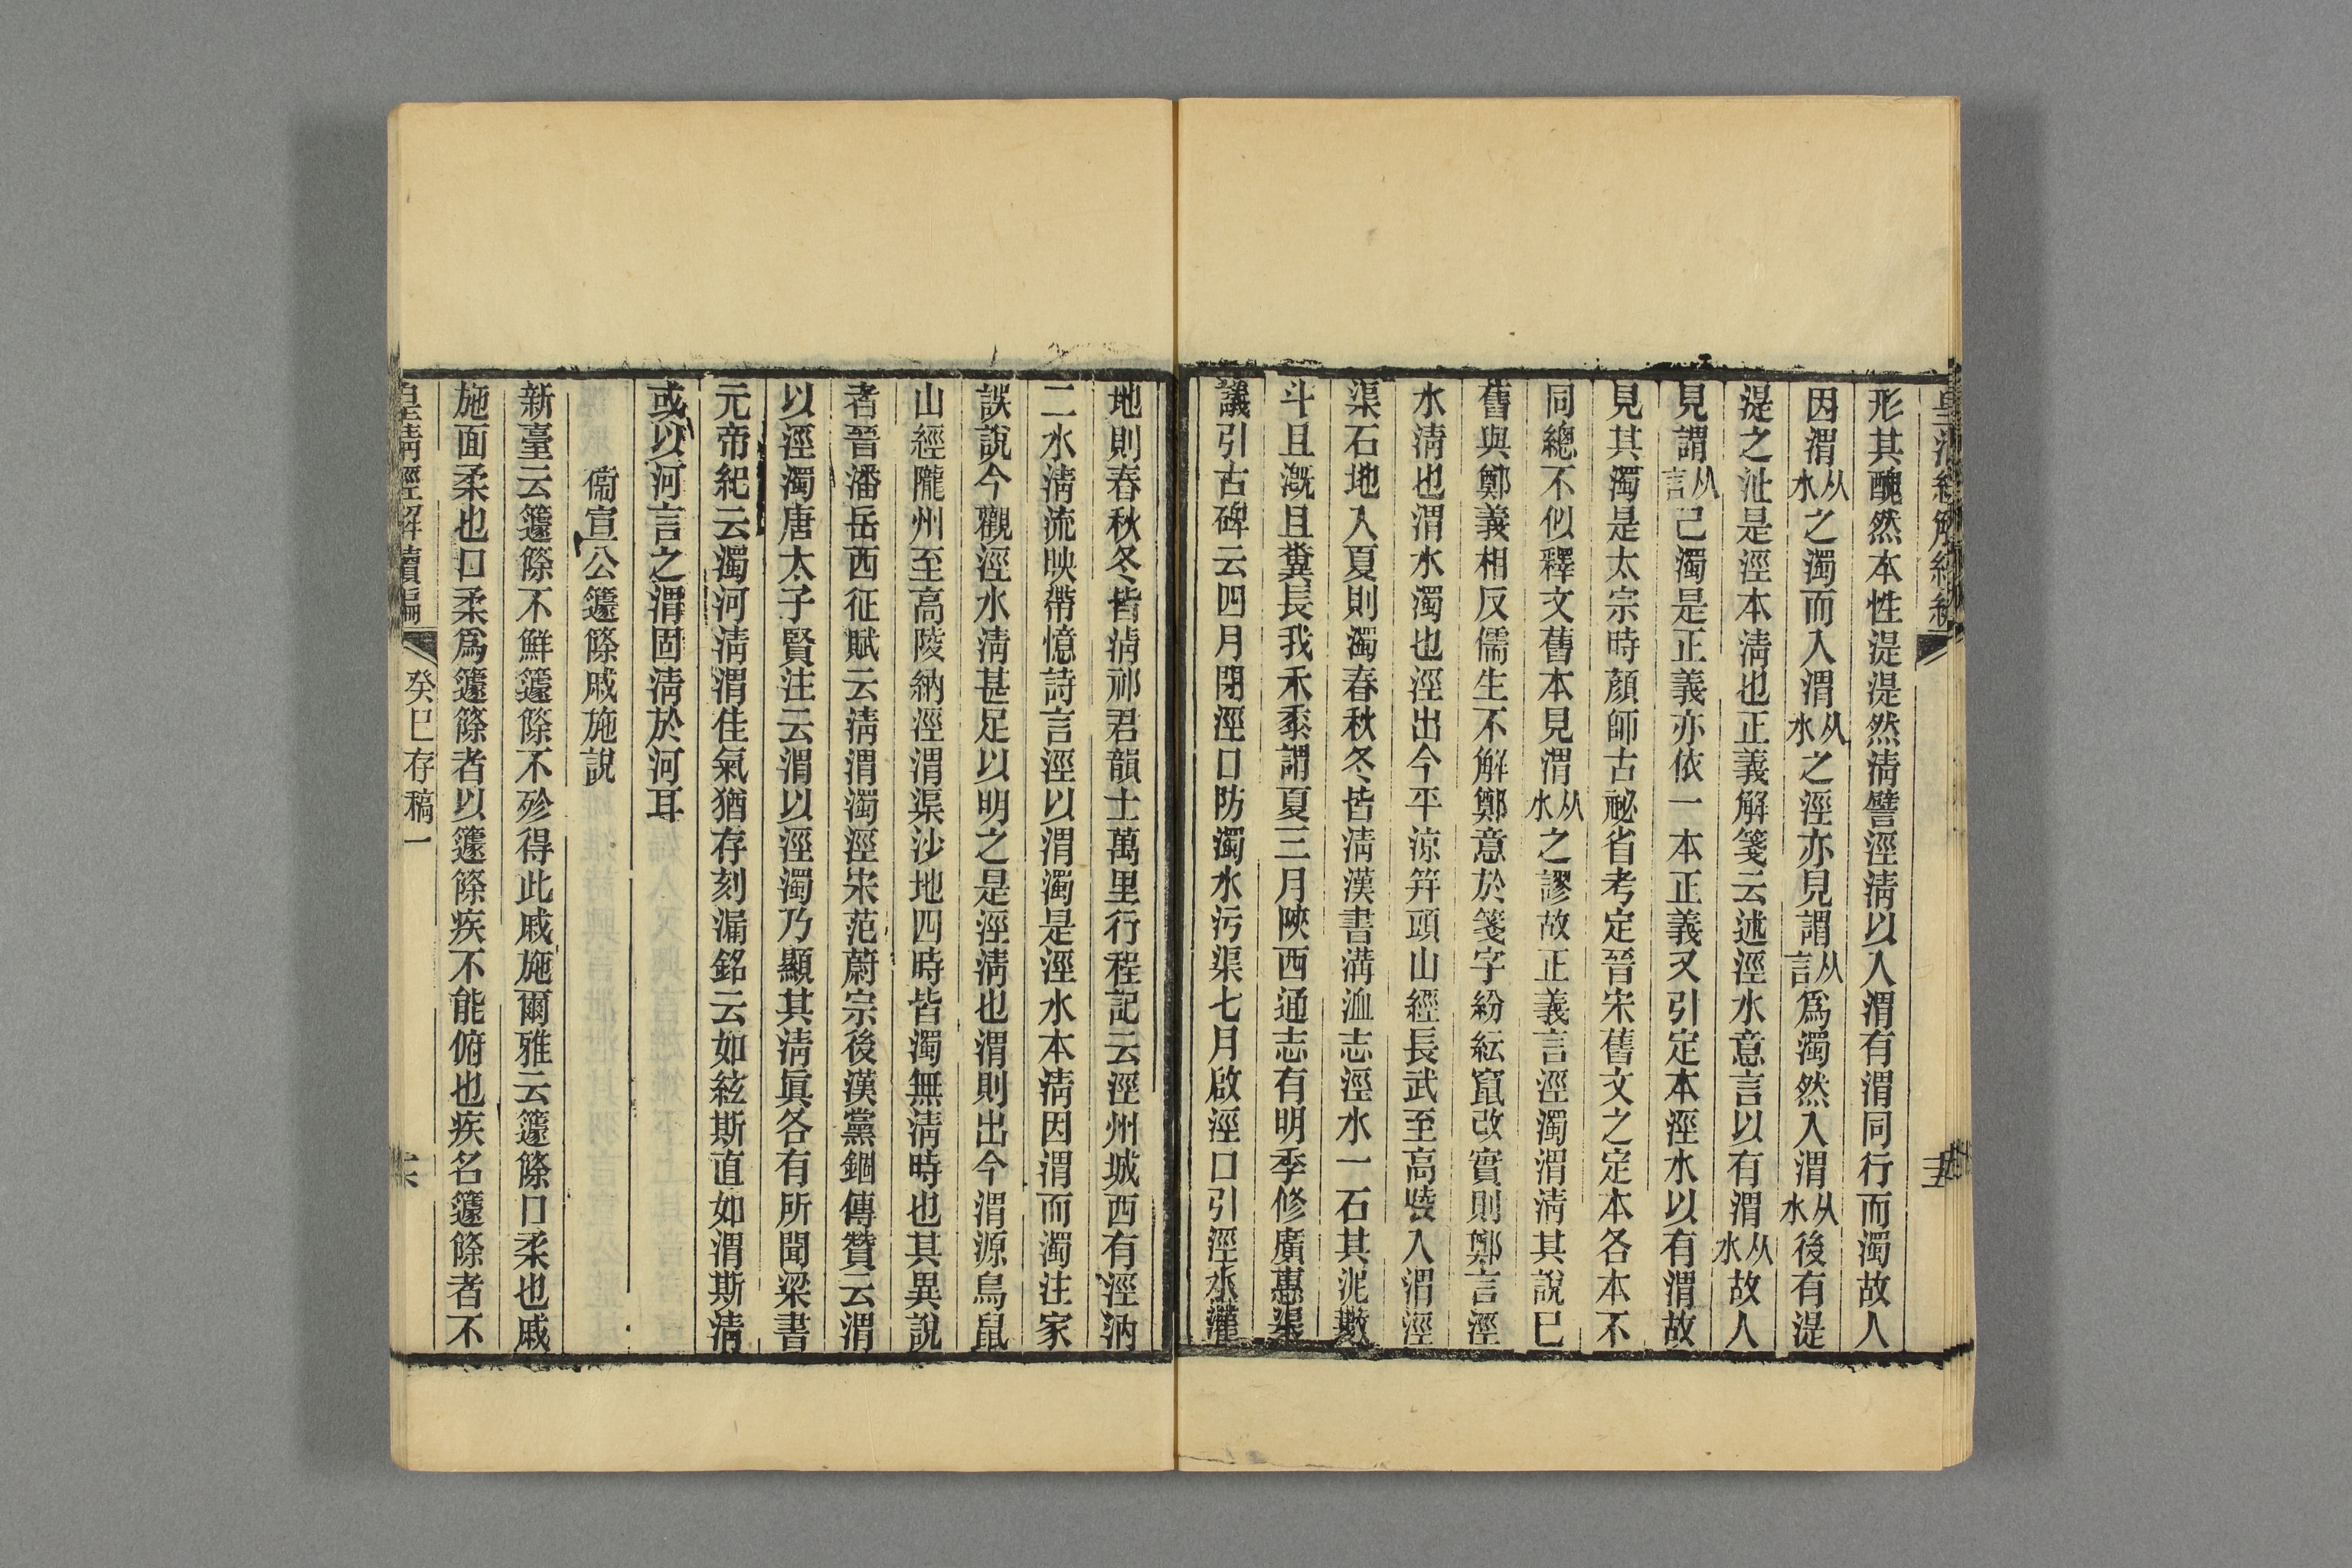 形其醜然本性湜湜然淸譬涇淸以入渭有渭同行而濁故人
因渭从水之濁而入渭从水之涇亦見謂从言爲濁然入渭从水後有湜
湜之沚是涇本淸也正義解箋云述涇水意言以有渭从水故人
見謂从言己濁是正義亦依一本正義又引定本涇水以有渭故
見其濁是太宗時顔師古祕省考定晉宋舊文之定本各本不
同總不似釋文舊本見渭从水之謬故正義言涇濁渭淸其說巳
舊與鄭義相反儒生不解鄭意於箋字紛紜竄改實則鄭言涇
水淸也渭水濁也涇出今平涼筓頭山經長武至高陵入渭涇
渠石地入夏則濁春秋冬皆淸漢書溝洫志涇水一石其泥數
斗且漑且糞長我禾黍謂夏三月陝西通志有明季修廣惠渠
議引古碑云四月閉涇口防濁水污渠七月啟涇口引涇水灌
地則春秋冬皆淸祁君韻士萬里行程記云涇州城西有涇汭
二水淸流映帶憶詩言涇以渭濁是涇水本淸因渭而濁注家
誤說今觀涇水淸甚足以明之是涇淸也渭則出今渭源鳥鼠
山經隴州至高陵納涇渭渠沙地四時皆濁無淸時也其異說
者晉潘岳西征賦云淸渭濁涇宋范蔚宗後漢黨錮傳贊云渭
以涇濁唐太子賢注云渭以涇濁乃顯其淸眞各有所聞梁書
元帝紀云濁河淸渭佳氣猶存刻漏銘云如絃斯直如渭斯淸
或以河言之渭固淸於河耳
衞宣公籧篨戚施說
新臺云籧篨不鮮籧篨不殄得此戚施爾雅云籧篨口柔也戚
施面柔也口柔爲籧篨者以籧篨疾不能俯也疾名籧篨者不
皇淸經解續編 癸巳存稿一